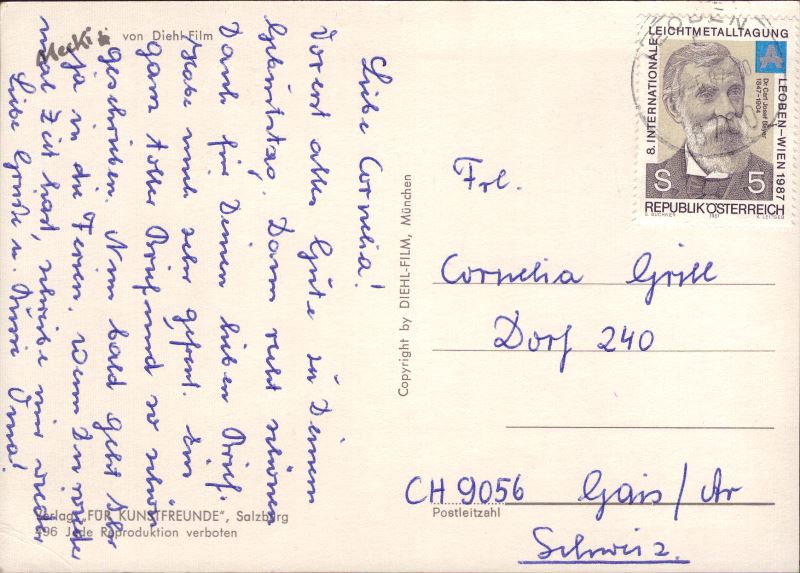 Liebe Cornelia!
Vorerst alles Gute zu Deinem
Geburtstag. Dann recht schönen
Dank für Deinen lieben Brief.
Habe mich sehr gefreut. Ein
ganz toller Brief und so schön
geschrieben. Nun bald geht Ihr
ja in die Ferien. Wenn Du wieder
mal Zeit hast, schreibe mir wieder
Liebe Grüße u. Bussi Oma!
Mecki
von Diehl-Film
Verlag „FÜR KUNSTFREUNDE“, Salzburg
496 Jede Reproduktion verboten
Copyright by DIEHL-FILM, München
8. INTERNATIONALE LEICHTMETALLTAGUNG LEOBEN–WIEN 1987
A
Dr. Carl Josef Bayer
1847–1904
S 5
REPUBLIK ÖSTERREICH
1987
LEOBEN
8700
Frl.
Cornelia Grill
Dorf 240
CH 9056 Gais/Ar
Postleitzahl
Schweiz.